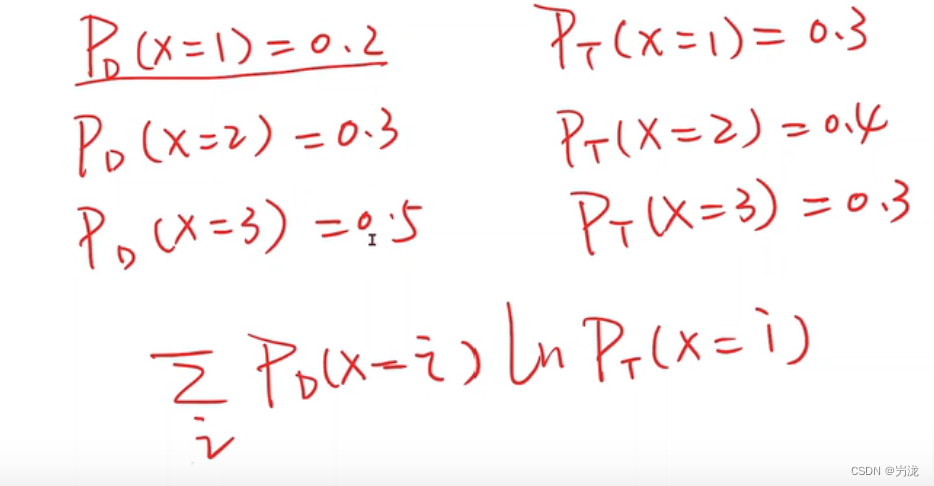 P_D(x=1)=0.2 P_T(x=1)=0.3
P_D(x=2)=0.3 P_T(x=2)=0.4
P_D(x=3)=0.5 P_T(x=3)=0.3
∑_i P_D(x=i) ln P_T(x=i)
CSDN @穷泷